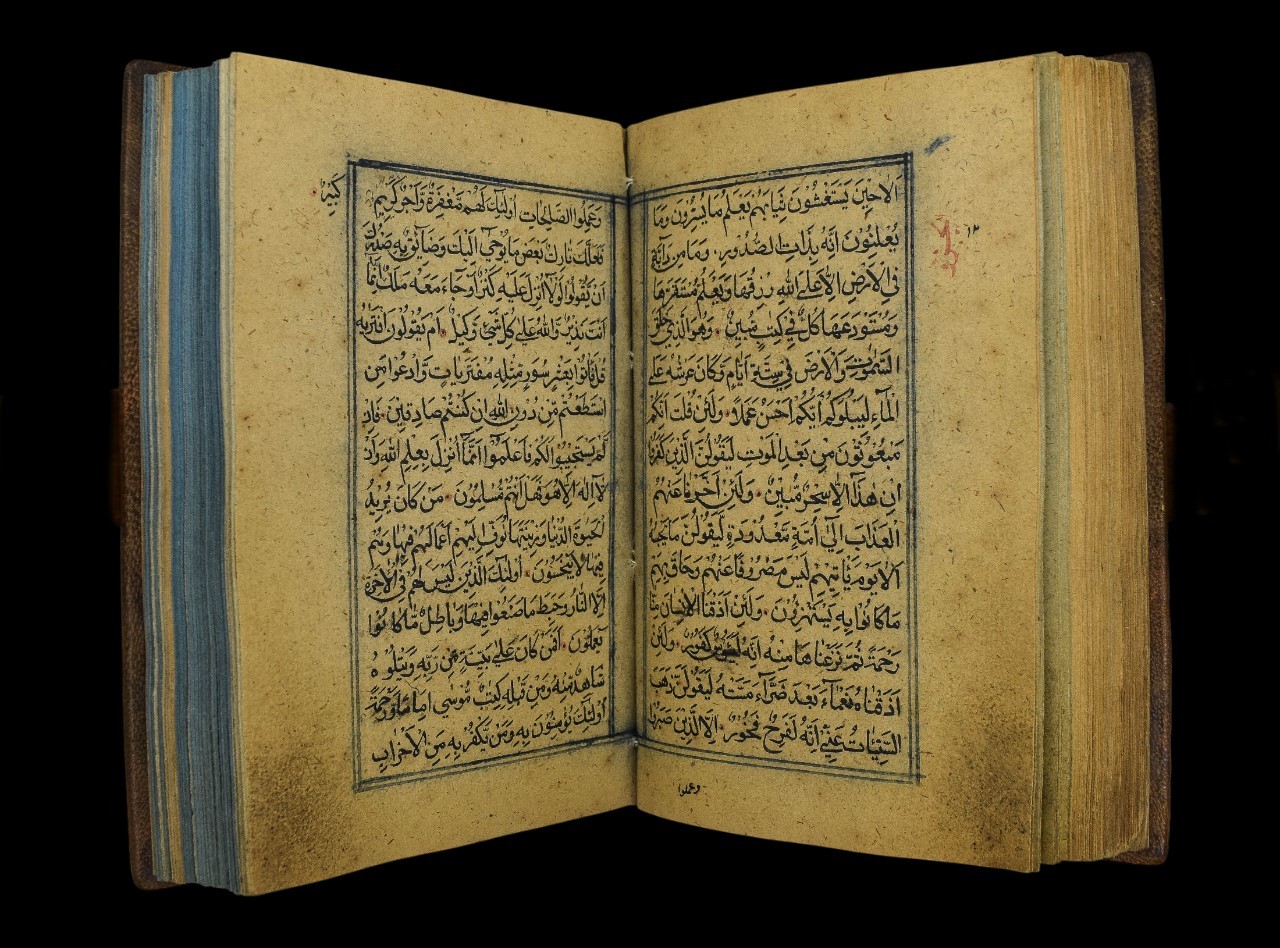 الاحين يستغشون ثيابهم يعلم ما يسرون وما
يعلنون انه بذات الصدور وما من دآبة
في الارض الا على الله رزقها ويعلم مستقرها
ومستودعها كل في كتب مبين وهو الذي خلق
السموت والارض في ستة ايام وكان عرشه على
المآء ليبلوكم ايكم احسن عملا ولئن قلت انكم
مبعوثون من بعد الموت ليقولن الذين كفروا
ان هذآ الا سحر مبين ولئن اخرنا عنهم
العذاب الى امة معدودة ليقولن ما يحبسه
الا يوم ياتيهم ليس مصروفا عنهم وحاق بهم
ما كانوا به يستهزؤن ولئن اذقنا الانسان منا
رحمة ثم نزعناها منه انه ليؤس كفور ولئن
اذقناه نعمآء بعد ضرآء مسته ليقولن ذهب
السيئات عني انه لفرح فخور الا الذين صبروا
وعملوا
١٢
وعملوا الصالحات اولئك لهم مغفرة واجر كبير
كبير
فلعلك تارك بعض ما يوحى اليك وضآئق به صدرك
ان يقولوا لولا انزل عليه كنز او جآء معه ملك انما
انت نذير والله على كل شيء وكيل ام يقولون افتريه
قل فاتوا بعشر سور مثله مفتريات وادعوا من
استطعتم من دون الله ان كنتم صادقين فان
لم يستجيبوا لكم فاعلموآ انمآ انزل بعلم الله وان
لآ اله الا هو فهل انتم مسلمون من كان يريد
الحيوة الدنيا وزينتها نوف اليهم اعمالهم فيها وهم
فيها لا يبخسون اولئك الذين ليس لهم في الاخرة
الا النار وحبط ما صنعوا فيها وباطل ما كانوا
يعملون افمن كان على بينة من ربه ويتلوه
شاهد منه ومن قبله كتب موسى اماما ورحمة
اولئك يؤمنون به ومن يكفر به من الاحزاب